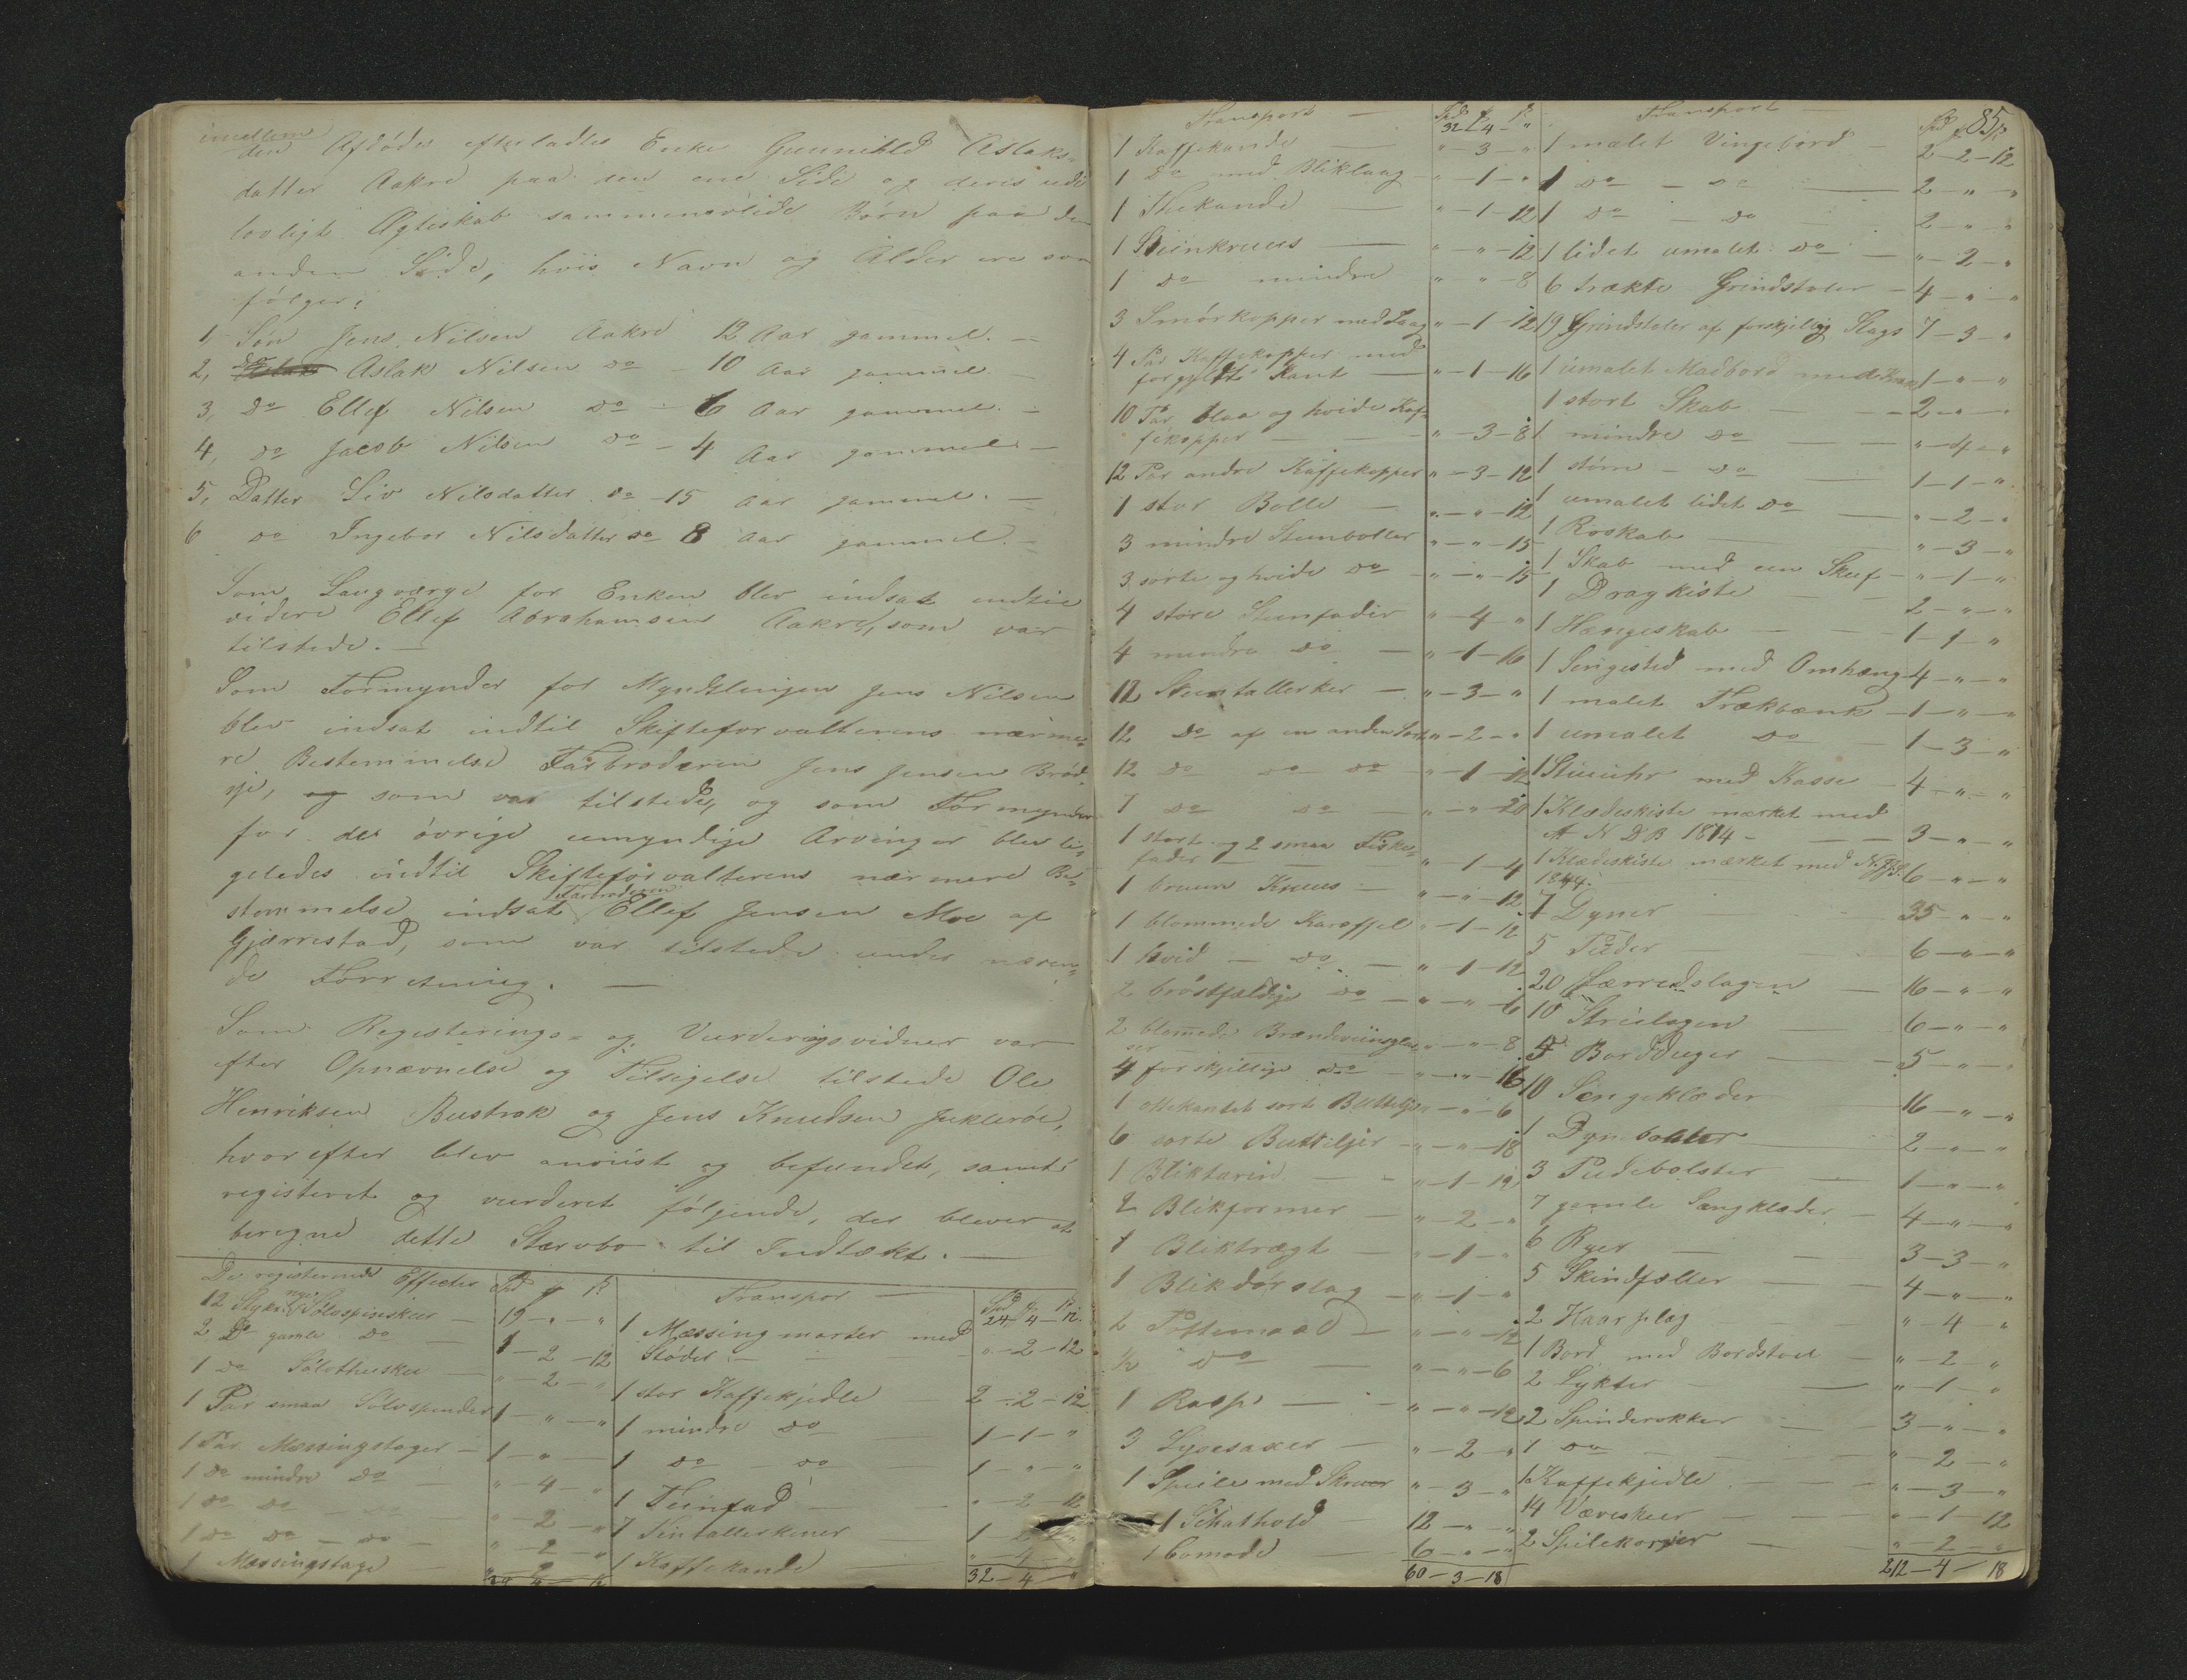 imellem
den Afdödes efterladte Enke Gunnild Aslaks-
datter Aakre paa den ene Side og deres udi
lovligt Ægteskab sammenavlede Börn paa den
anden Side, hvis Navn og Alder ere som
fölger:
1, Sön Jens Nilsen Aakre 12 Aar gammel. —
2, do Aslak Nilsen do 10 Aar gammel —
3, do Ellef Nilsen do - 6 Aar gammel. —
4, do Jacob Nilsen do - 4 Aar gammel —
5, Datter Liv Nilsdatter do - 15 Aar gammel. —
6 do Ingebor Nilsdatter do 8 Aar gammel. —
Som Laugværge for Enken blev indsat indtil
videre Ellef Abrahamsen Aakre, som var
tilstede. —
Som Formynder for Myndlingen Jens Nilsen
blev indsat indtil Skifteforvalterens nærme-
re Bestemmelse Farbroderen Jens Jensen Bröd-
sje, og som var tilstede, og som Formynder
for de övrige umyndige Arvinger blev li-
geledes indtil Skifteforvalterens nærmere Be-
stemmelse indsat Farbroderen Ellef Jensen Moe af
Gjærrestad, som var tilstede under næren-
de Forretning. —
Som Registerings- og Vurderingsvidner var
efter Opnævnelse og Tilsigelse tilstede Ole
Henriksen Bustrak og Jens Knudsen Jukleröe,
hvorefter blev anviist og befundet, samt
registeret og vurderet fölgende, der bliver at
beregne dette Stervbo til Indtækt. —
De registerende Effecter Spd ₰ ß
12 Stykr nye Sölvspiseskeer — 19 - " - "
2 do gamle do — 1 - 2 - 12
1 do Sölvtheskee — " - 2 - "
1 Par smaa Sölvspender 1 - " - "
1 Par Messingstager — 1 - " - "
1 do mindre do — " - 4 - "
1 do do — " - 2 - "
1 do do — do — " - 2 - "
1 Messingstage — " - 2 - "
24 - 4 - 12
Transpor — Spd ₰ ß
24 - 4 - 12.
1 Messing morter med
Stöder — " - 2 - 12
1 stor Kaffekjedle 2 - 2 - 12
1 mindre do 1 - 1 - "
1 do - do 1 - " - "
1 Tinfad — " - 2 - 12
7 Tintallerkener 1 - 2 - "
1 Kaffekande " - 4 - "
32 - 4 - "
Transport — Spd ₰ ß
32 - 4 - "
1 Kaffekande — " - 3 - "
1 do med Bliklaag " - 1 - "
1 Thekande — " - 1 - 12
1 Steenkruus — " - " - 12
1 do mindre " - " - 8
3 Smörkopper med Laag " - 1 - 12
4 Par Kaffekopper med
forgyldte Kant — " - 1 - 16
10 Par blaa og hvide Kaf-
fekopper — " - 3 - 8
12 Par andre Kaffekopper " - 3 - 12
1 stor Bolle — " - " - 12
3 mindre Steenboller " - " - 15
3 sorte og hvide do " - " - 15
4 store Steenfader " - 4 - "
4 mindre do — " - 1 - 16
12 Steentallerker — " - 3 - "
12 do af en anden Sort " - 2 - "
12 do do do " - 1 - 12
7 do do — " - " - 20
1 stort og 2 smaa Fiske-
fader — " - 1 - 4
1 bruun Kruus — " - " - 12
1 blommede Karaffel " - 1 - 12
1 hvid — do — " - 1 - 12
2 bröstfældige do — " - " - 6
2 blommede Brændeviinsglas-
ser " - " - 8
4 forskjellige do — " - " - 16
1 ottekantet sort Buttelje " - " - 6
6 sorte Butteljer — " - " - 18
1 Bliktærin — " - 1 - 12
2 Blikformer — " - 2 - "
1 Bliktragt — " - 1 - "
1 Blikdörslag — " - 1 - "
2 Pottemaad — " - " - 12
½ do — " - " - 6
1 Rasp — " - " - 12
3 Lysesaxer — " - 2 - "
1 Speile med Skruer " - 3 - "
1 Schathold — 12 - " - "
1 Comode — 6 - " - "
60 - 3 - 18
85
Transport — Spd ₰ ß
1 malet Vingebord — 2 - 2 - 12
1 do — do — 2 - " - "
1 do — do 2 - " - "
1 lidet umalet do — " - 2 - "
6 trækte Grindstoler — 4 - " - "
19 Grindstoler af forskjellig Slags 7 - 3 - "
1 umalet Madbord 1 - " - "
1 stort Skab — 2 - " - "
1 mindre do — " - 4 - "
1 större — do — 1 - 1 - "
1 umalet lidet do — " - 2 - "
1 Roskab — " - 3 - "
1 Skab med een Skuf " - 1 - "
1 Dragkiste — 2 - " - "
1 Hængeskab — 1 - 1 - "
1 Sengested med Omhæng 4 - " - "
1 malet Trækbænk — 1 - " - "
1 umalet do — 1 - 3 - "
1 Stueuhr med Kasse — 4 - " - "
1 Klædeskiste mærket med
A N D B 1814 — 3 - " - "
1 Klædeskiste mærket med
1844. 6 - " - "
7 Dyner 35 - " - "
5 Puder 6 - " - "
20 Lærredslagen — 16 - " - "
10 Strielagen — 6 - " - "
5 Bordduger — 5 - " - "
10 Sengeklæder 16 - " - "
1 Dynebolster 2 - " - "
3 Pudebolster — 1 - " - "
7 gamle Sengklæder 4 - " - "
6 Ryer — 3 - 3 - "
5 Skindfælter 4 - " - "
2 Haarplag " - 4 - "
1 Bord med Bordstoel — " - 2 - "
2 Lykter — " - 1 - "
2 Spinderokker — 3 - " - "
1 do " - 2 - "
1 Kaffekjedle " - 3 - "
14 Væveskeer " - 1 - 12
2 Spilekorjer — " - 2 - "
212 - 4 - 18